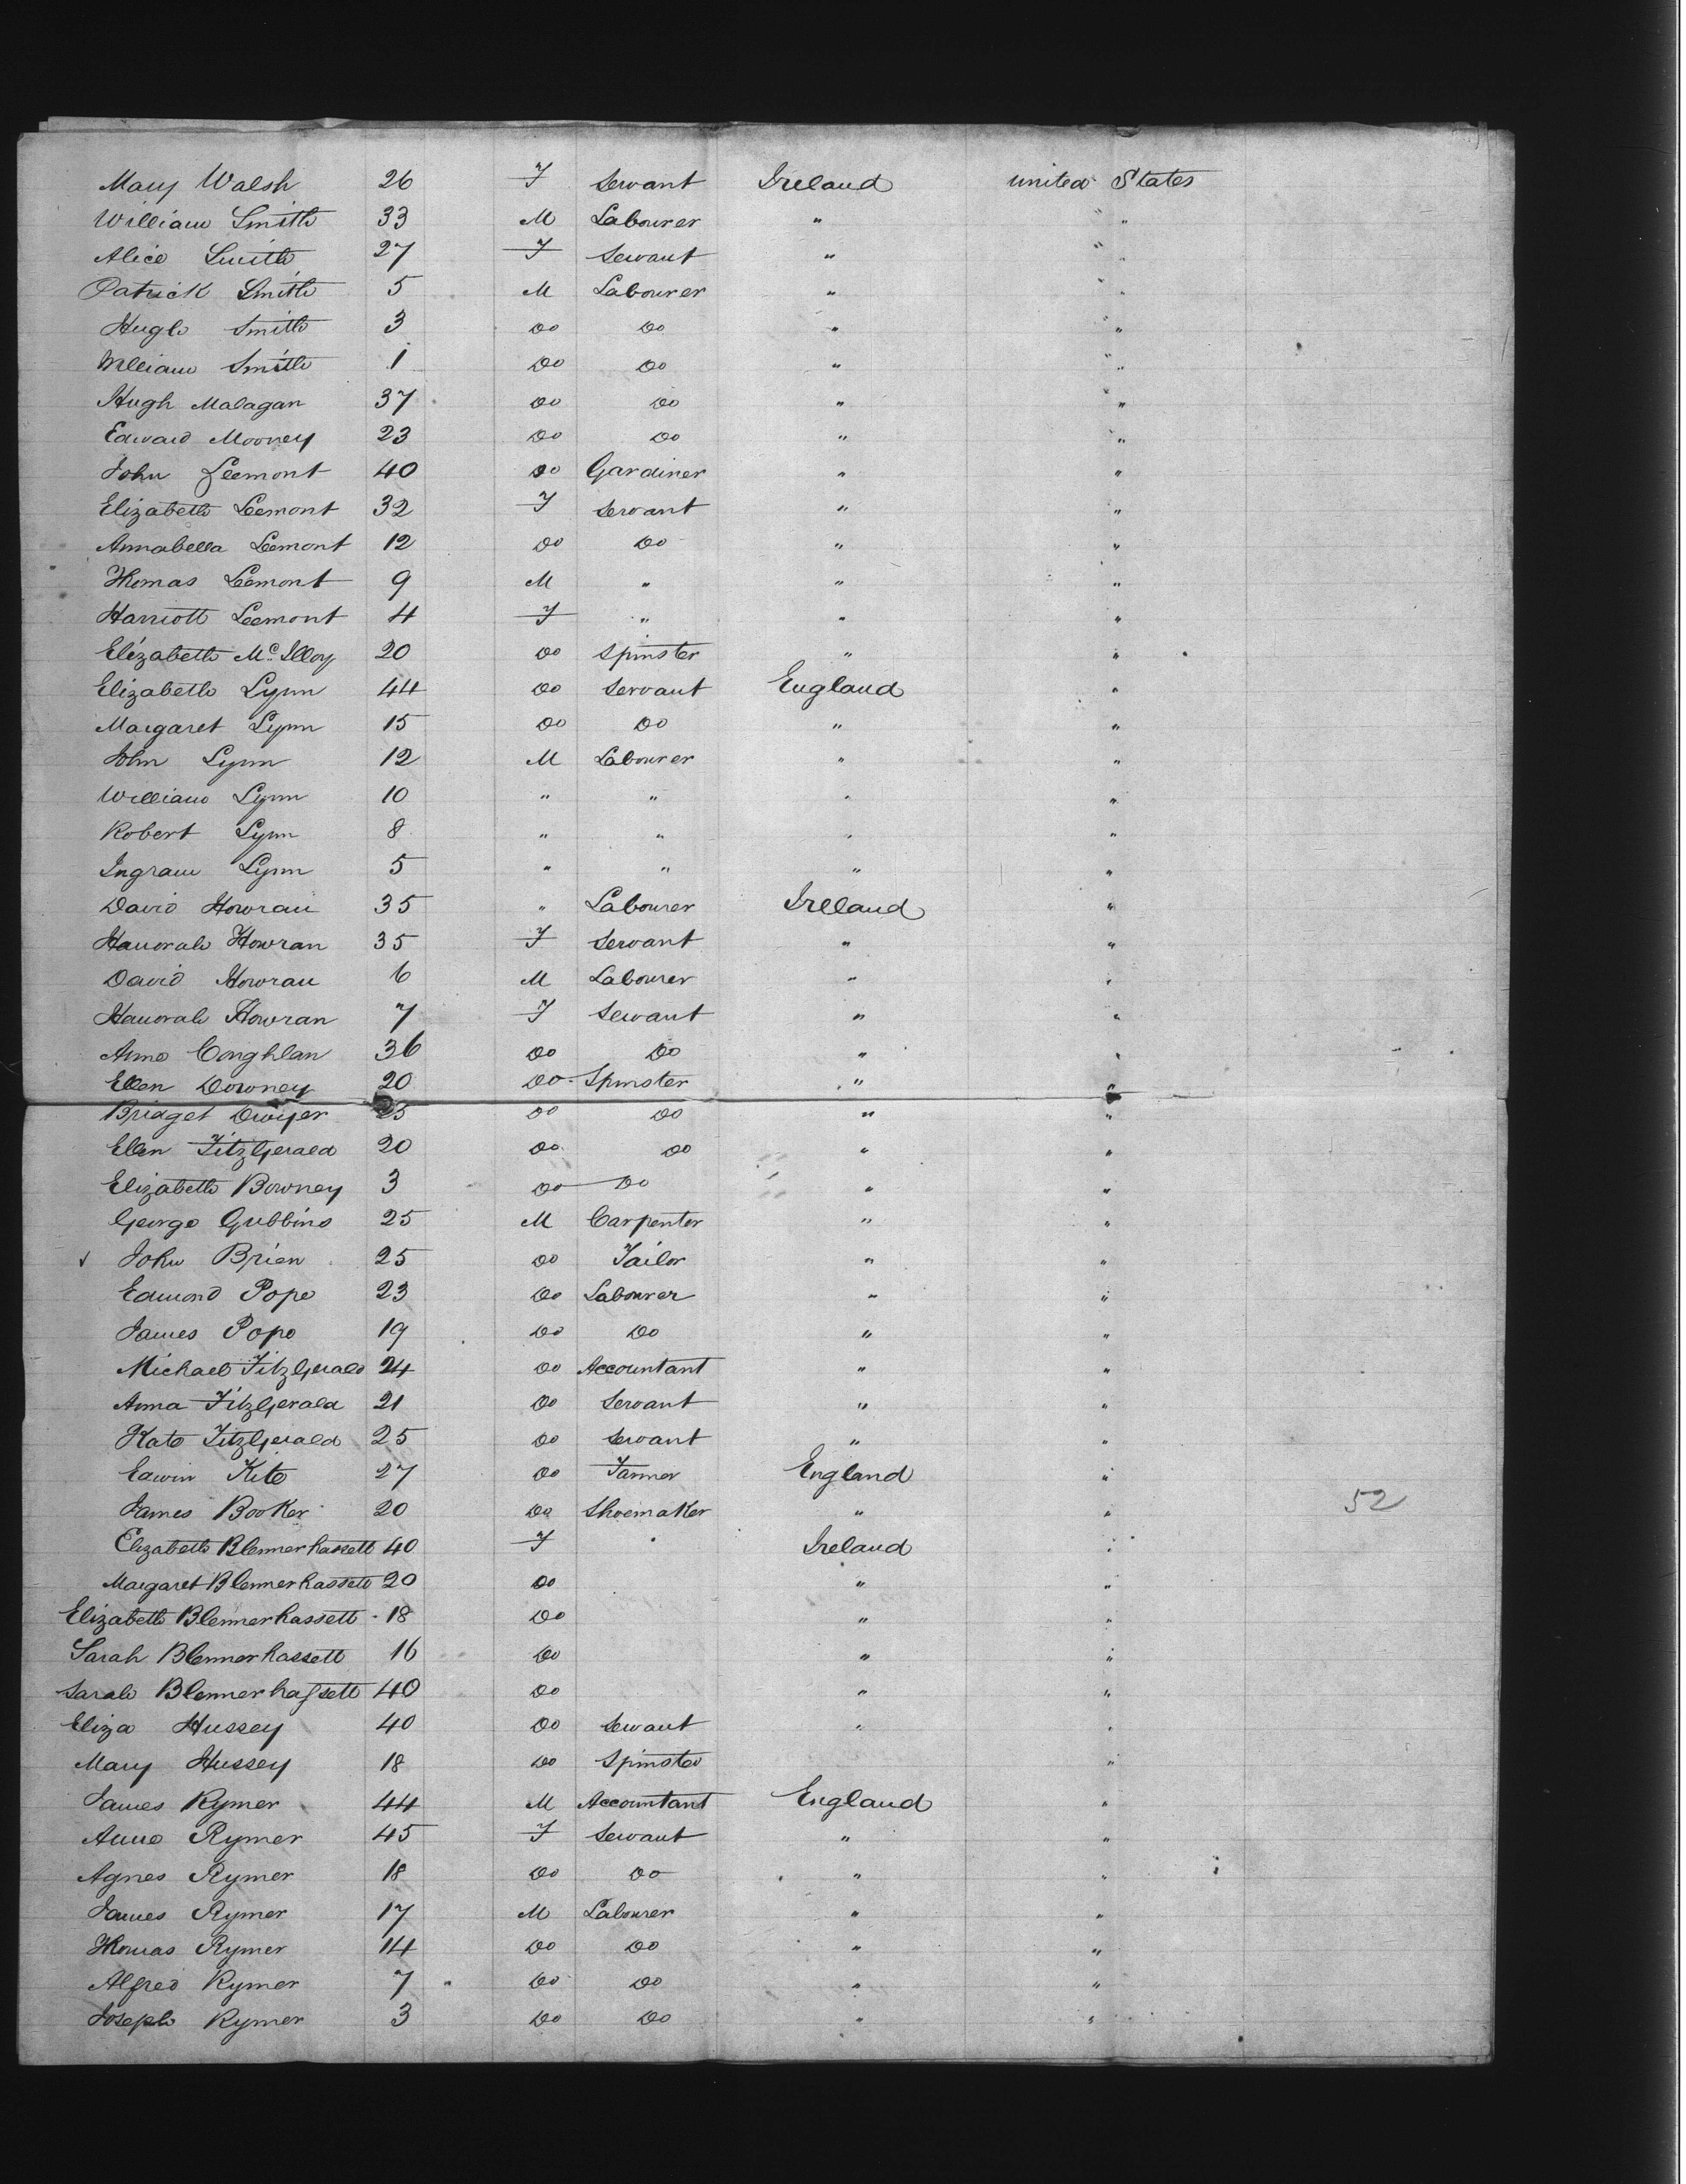 Mary Walsh 26 F Servant Ireland United States
William Smith 33 M Labourer " " "
Alice Smith 27 F Servant " " "
Patrick Smith 5 M Labourer " " "
Hugh Smith 3 Do Do " " "
William Smith 1 Do Do " " "
Hugh Malagan 37 Do Do " " "
Edward Mooney 23 Do Do " " "
John Leemont 40 Do Gardiner " "
Elizabeth Leemont 32 F Servant " "
Annabella Leemont 12 Do Do " "
Thomas Leemont 9 M " " "
Harriott Leemont 4 F " " "
Elizabeth McIlloy 20 Do Spinster " "
Elizabeth Lynn 44 Do Servant England "
Margaret Lynn 15 Do Do " "
John Lynn 12 M Labourer " "
William Lynn 10 " " " "
Robert Lynn 8 " " " "
Ingram Lynn 5 " " " "
David Howran 35 " Labourer Ireland "
Hanorah Howran 35 F Servant " "
David Howran 6 M Labourer " "
Hanorah Howran 7 F Servant " "
Anne Conghlan 36 Do Do " "
Ellen Downey 20 Do Spinster " "
Bridget Dwyer 25 Do Do " "
Ellen FitzGerald 20 Do Do " "
Elizabeth Bowney 3 Do Do " "
George Gubbins 25 M Carpenter " "
John Brien 25 Do Tailor " "
Edmond Pope 23 Do Labourer " "
James Pope 19 Do Do " "
Michael FitzGerald 24 Do Accountant " "
Anna FitzGerald 21 Do Servant " "
Kate FitzGerald 25 Do Servant " "
Edwin Kite 27 Do Farmer England "
James Booker 20 Do Shoemaker " " 52
Elizabeth Blennerhassett 40 F Ireland "
Margaret Blennerhassett 20 Do " "
Elizabeth Blennerhassett 18 Do " "
Sarah Blennerhassett 16 Do " "
Sarah Blennerhassett 40 Do " "
Eliza Hussey 40 Do Servant " "
Mary Hussey 18 Do Spinster "
James Rymer 44 M Accountant England "
Anne Rymer 45 F Servant " "
Agnes Rymer 18 Do Do " "
James Rymer 17 M Labourer " "
Thomas Rymer 14 Do Do " "
Alfred Rymer 7 Do Do " "
Joseph Rymer 3 Do Do " "